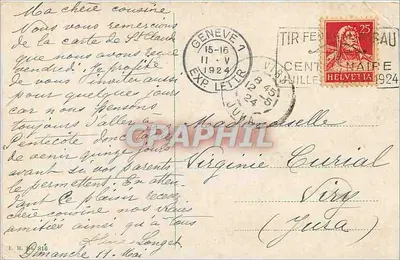 Ma chère cousine
Nous vous remercions
de la carte de St Claude
que nous avons reçue
vendredi. Je profite
de vous inviter aussi
pour quelques jours
car nous pensons
toujours d'aller à
Pentecôte donc
de venir quinze jours
avant si vos parents
le permettent. En atten-
dant ce plaisir recevez
chère cousine nos vraies
amitiés ainsi qu'à tous
Longet
Dimanche 11 Mai
GENEVE 1
15-16
11 · V
1924
EXP. LETTR.
TIR FED
CENTENAIRE
1924
25
HELVETIA
JURA
CPAPHIL
Mademoiselle
Virginie Curial
Viry
(Jura)